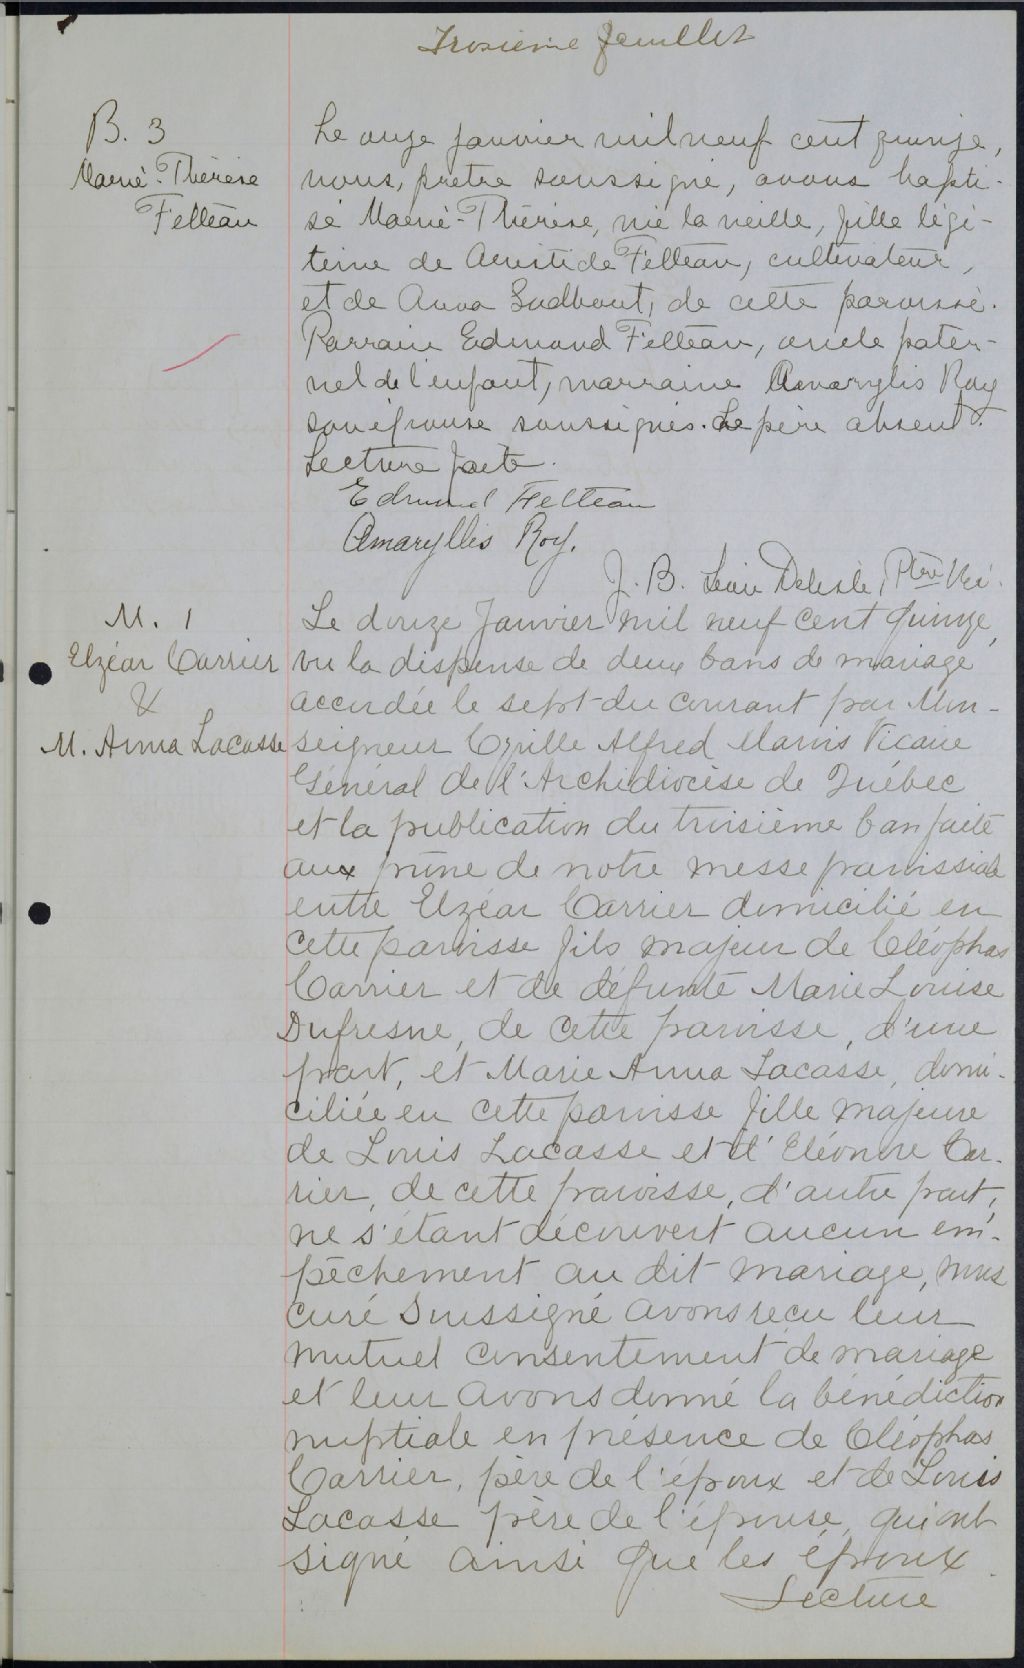 Troisième feuillet
B. 3
Marie-Thérèse
Felteau
Le onze janvier mil neuf cent quinze,
nous, prêtre soussigné, avons bapti-
sé Marie-Thérèse, née la veille, fille légi-
time de Aristide Felteau, cultivateur,
et de Anna Godbout, de cette paroisse.
Parrain Edmond Felteau, oncle pater-
nel de l'enfant, marraine Amaryllis Roy
son épouse soussignés. Le père absent.
Lecture faite.
Edmond Felteau
Amaryllis Roy.
J. B. Delisle, Ptre Vic.
M. 1
Elzéar Carrier
&
M. Anna Lacasse
Le douze Janvier mil neuf cent quinze,
vu la dispense de deux bans de mariage
accordée le sept du courant par Mon-
seigneur Cyrille Alfred Marois Vicaire
Général de l'Archidiocèse de Québec
et la publication du troisième ban faite
aux prône de notre messe paroissiale
entre Elzéar Carrier domicilié en
cette paroisse fils majeur de Cléophas
Carrier et de défunte Marie Louise
Dufresne, de cette paroisse, d'une
part, et Marie Anna Lacasse, domi-
ciliée en cette paroisse fille majeure
de Louis Lacasse et d'Eléonore Car-
rier, de cette paroisse, d'autre part,
ne s'étant découvert aucun em-
pêchement au dit mariage, nous
curé soussigné avons reçu leur
mutuel consentement de mariage
et leur avons donné la bénédiction
nuptiale en présence de Cléophas
Carrier, père de l'époux et de Louis
Lacasse père de l'épouse, qui ont
signé ainsi que les époux.
Lecture